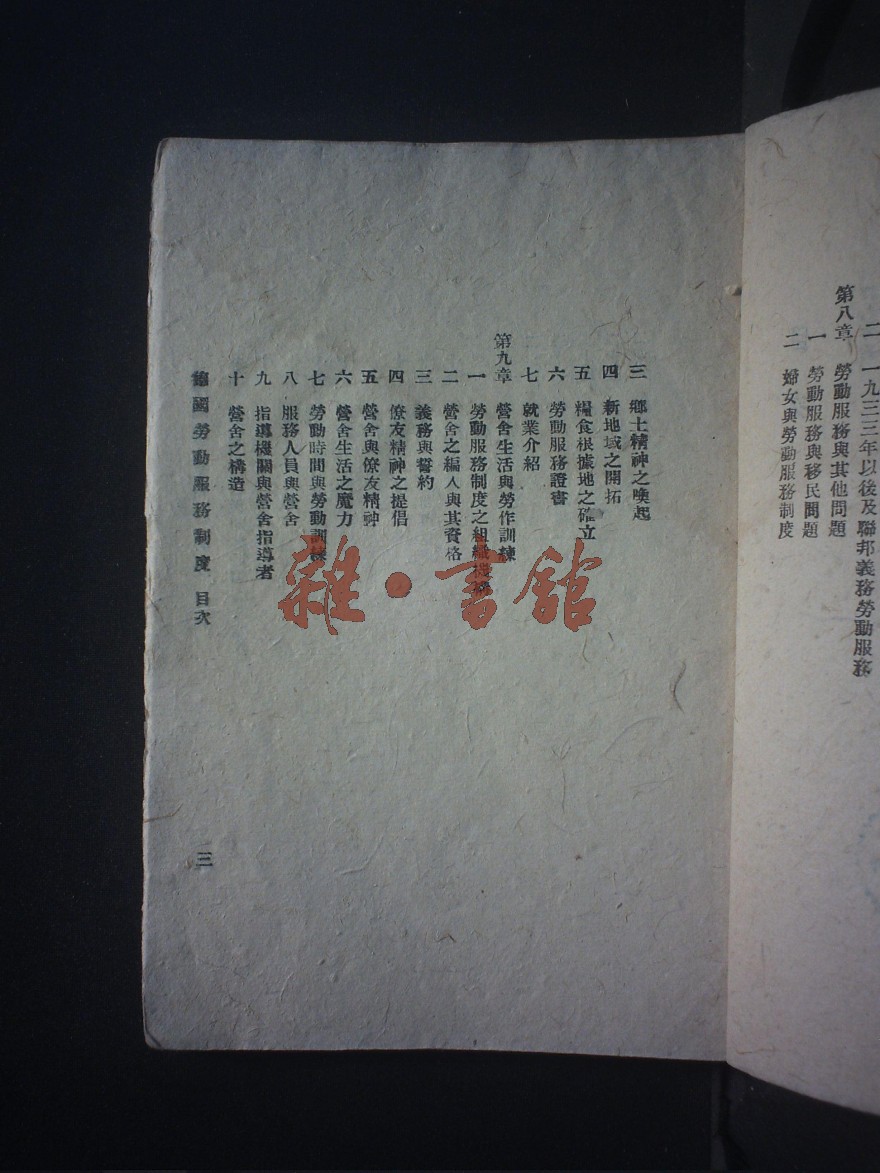 二 一九三三年以後及聯邦義務勞動服務
第八章 勞動服務與其他問題
一 勞動服務與移民問題
二 婦女與勞動服務制度
三 鄉土精神之喚起
四 新地域之開拓
五 糧食根據地之確立
六 勞動服務證書
七 就業介紹
第九章 營舍生活與勞作訓練
一 勞動服務制度之組織機構
二 營舍之編入與其資格
三 義務與誓約
四 僚友精神之提倡
五 營舍與僚友精神
六 營舍生活之魔力
七 勞動時間與勞動訓練
八 服務人員與營舍
九 指導機關與營舍指導者
十 營舍之構造
德國勞動服務制度 目次
三
雜·書館